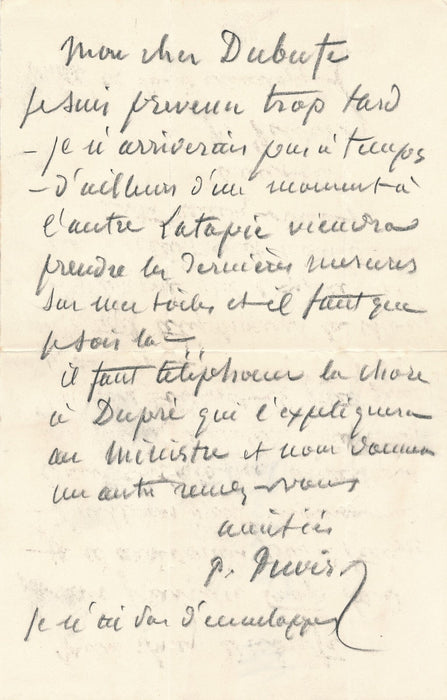 Mon cher Dubufe
je suis prevenu trop tard
– je n'arriverais pas à temps
– d'ailleurs d'un moment à
l'autre Latapie viendra
prendre les dernières mesures
sur mes toiles et il faut que
je sois là –
il faut téléphoner la chose
à Dupré qui l'expliquera
au Ministre et nous donnera
un autre rendez-vous
amitiés
P. Puvis
je n'ai pas d'enveloppes